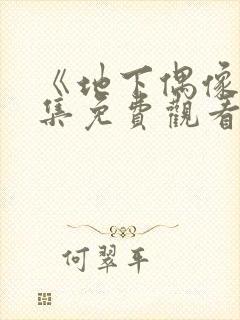 《地下偶像
集免費觀看
何翠平